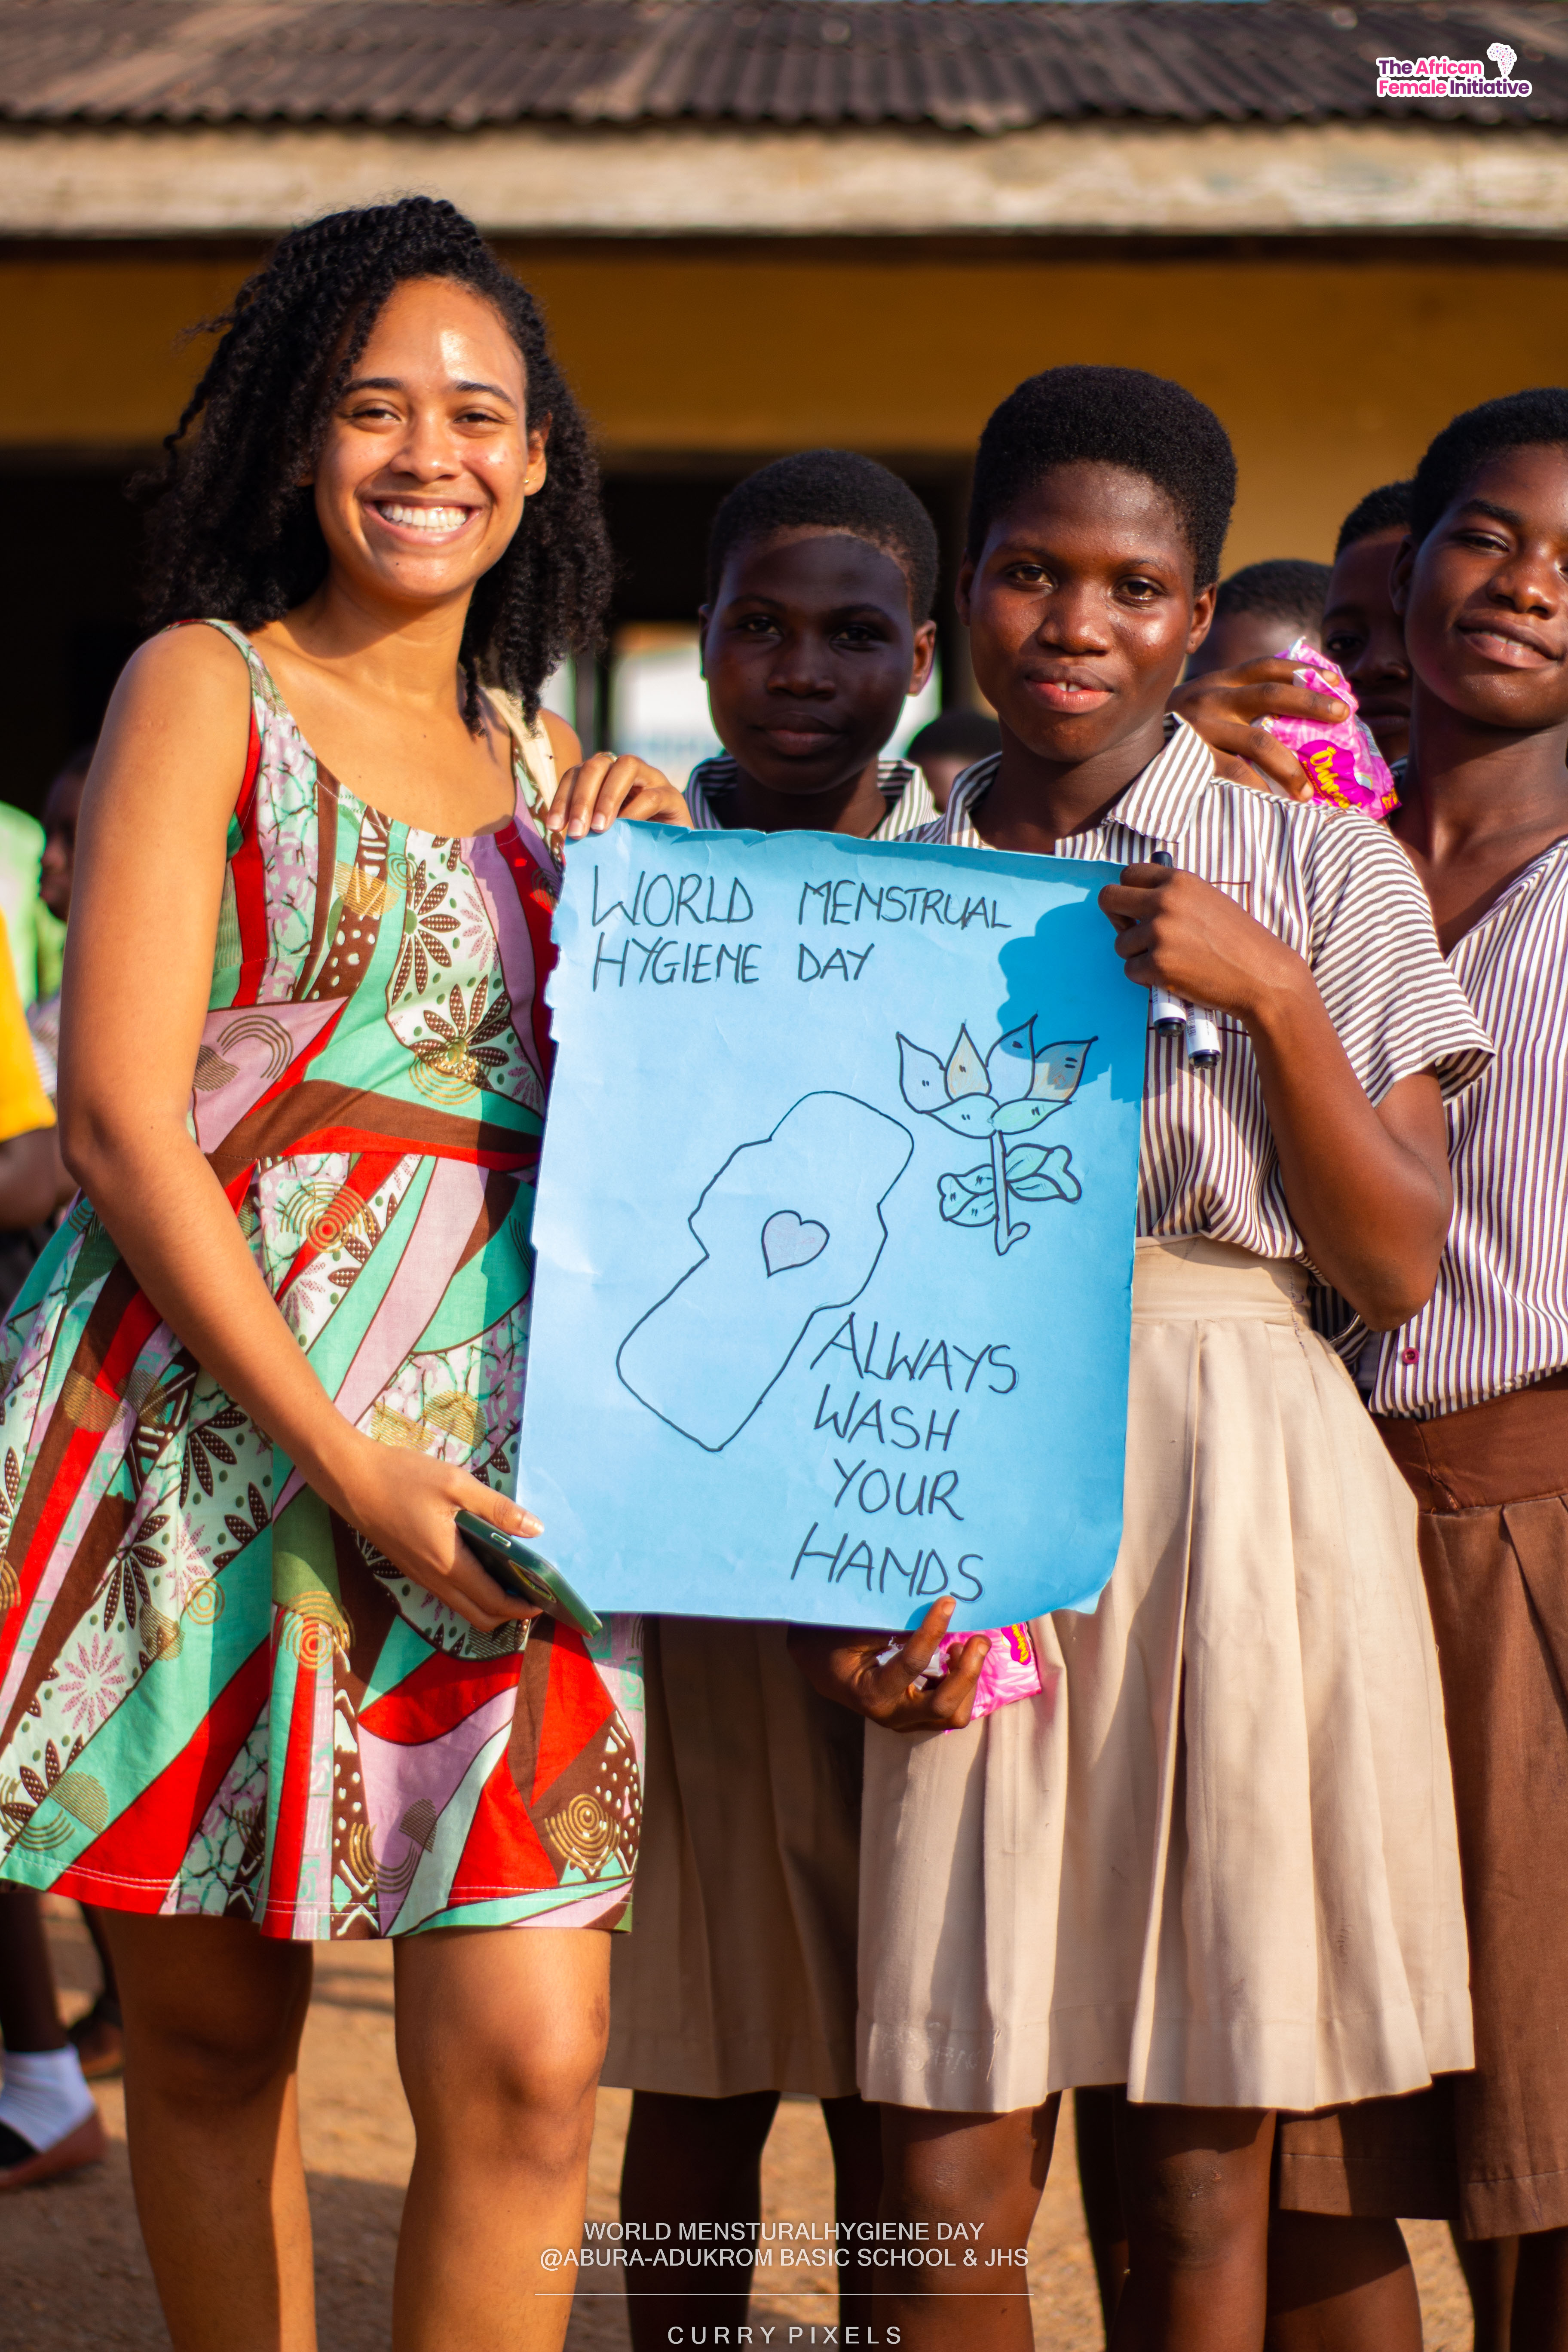 The African
Female Initiative
WORLD MENSTRUAL
HYGIENE DAY
ALWAYS
WASH
YOUR
HANDS
WORLD MENSTURALHYGIENE DAY
@ABURA-ADUKROM BASIC SCHOOL & JHS
CURRY PIXELS